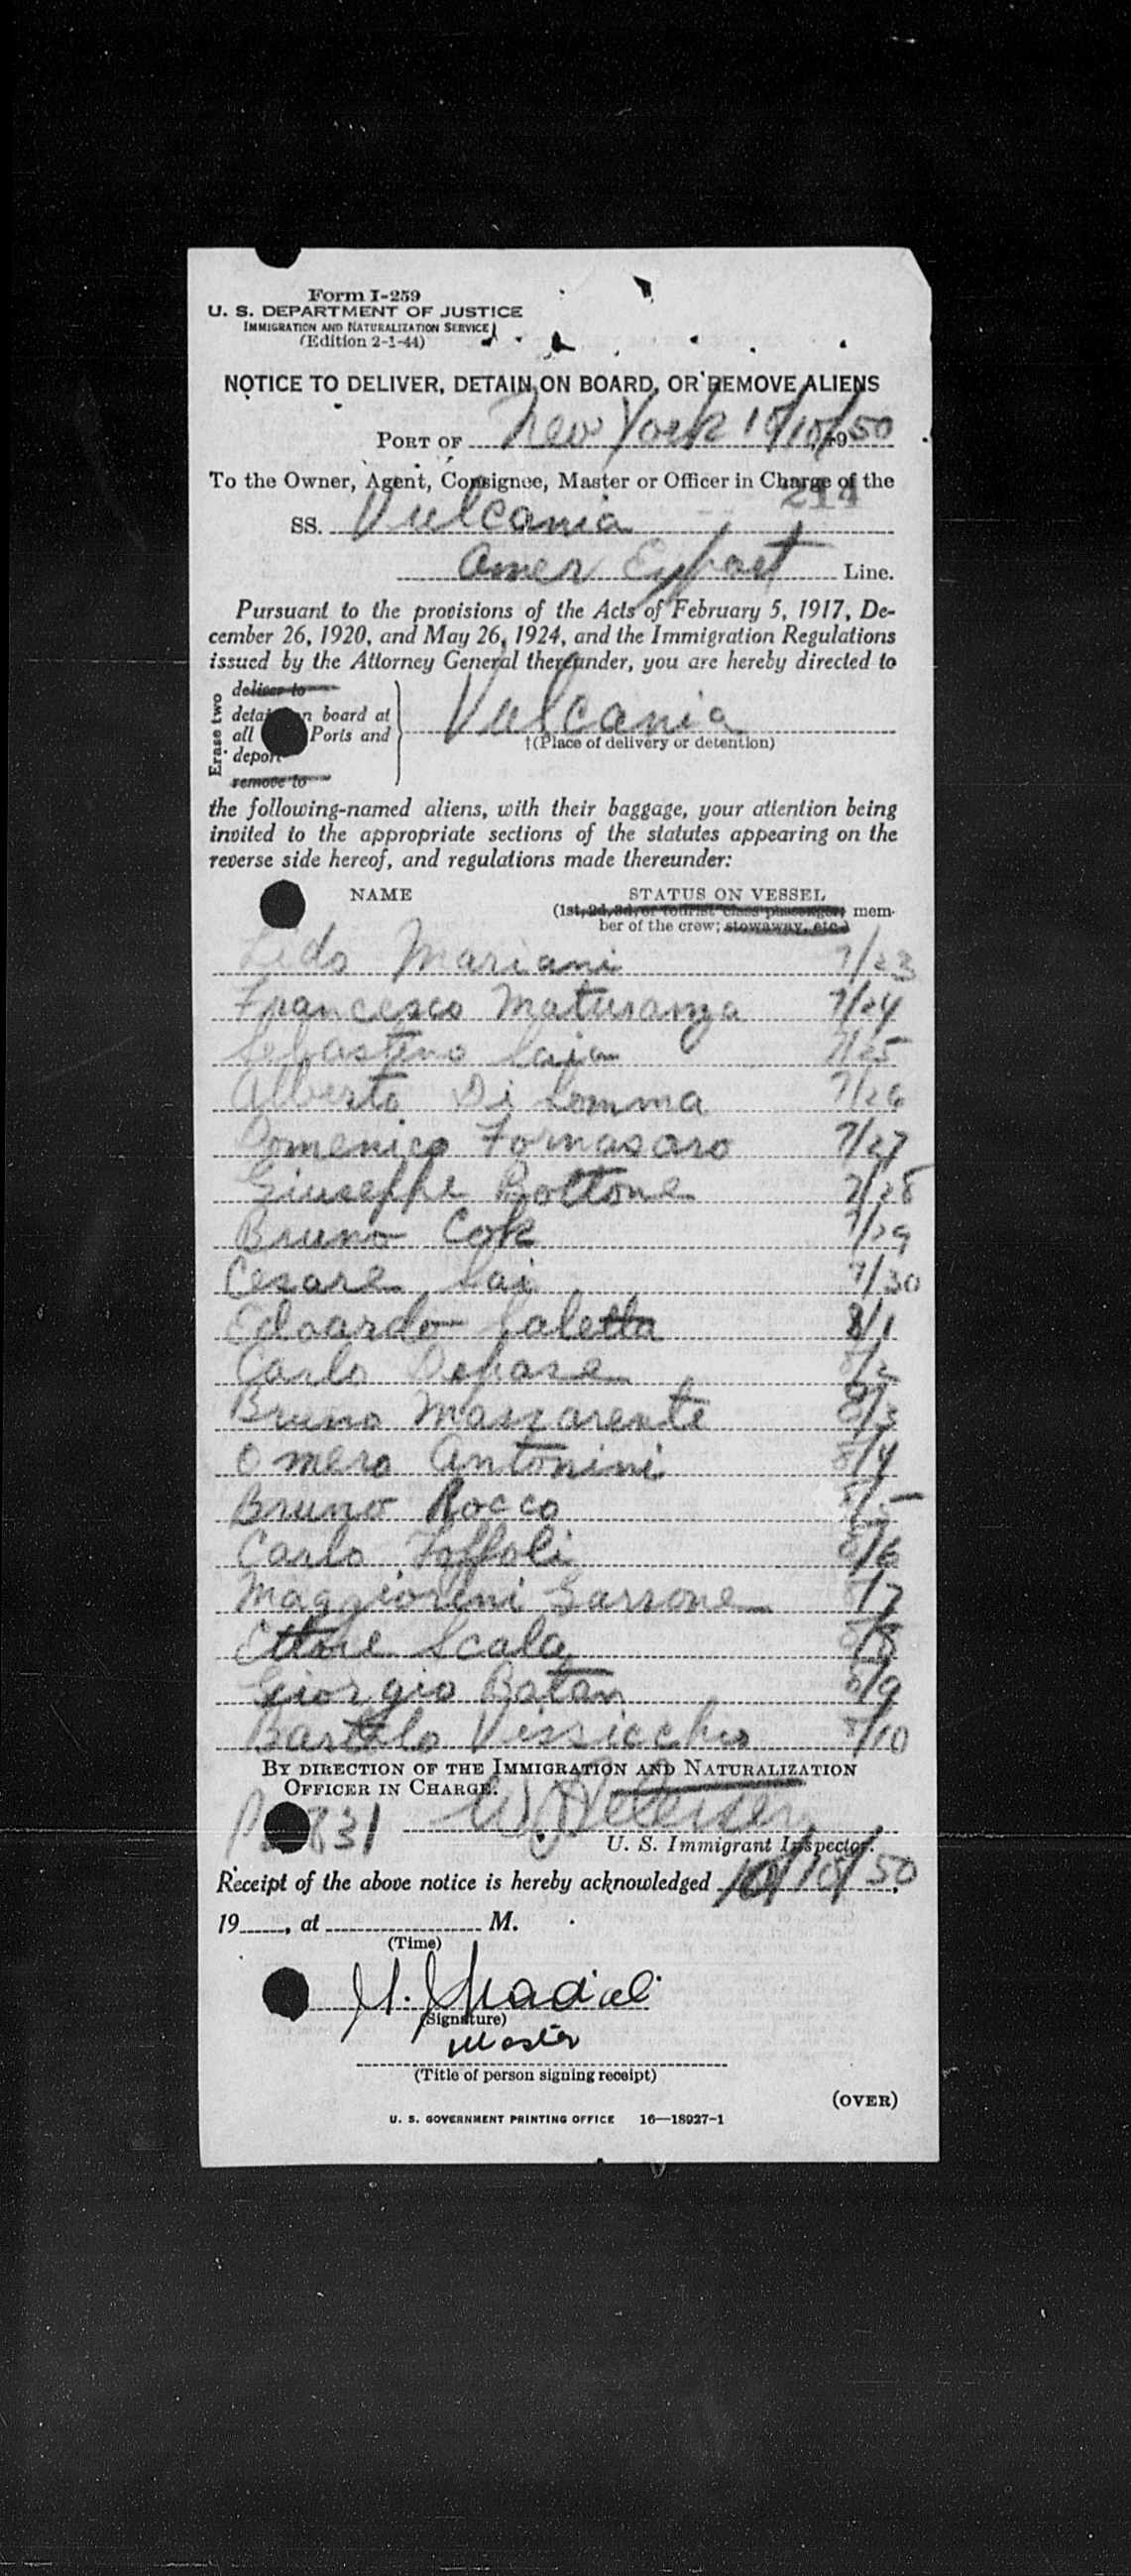 Form I-259
U. S. DEPARTMENT OF JUSTICE
IMMIGRATION AND NATURALIZATION SERVICE
(Edition 2-1-44)
NOTICE TO DELIVER, DETAIN ON BOARD, OR REMOVE ALIENS
PORT OF New York 10/10/50, 19
To the Owner, Agent, Consignee, Master or Officer in Charge of the
214
SS. Vulcania
Amer Export Line.
Pursuant to the provisions of the Acts of February 5, 1917, De-
cember 26, 1920, and May 26, 1924, and the Immigration Regulations
issued by the Attorney General thereunder, you are hereby directed to
Erase two
deliver to
detain on board at
all Ports and
deport
remove to
Vulcania
†(Place of delivery or detention)
the following-named aliens, with their baggage, your attention being
invited to the appropriate sections of the statutes appearing on the
reverse side hereof, and regulations made thereunder:
NAME STATUS ON VESSEL
(1st, 2d, 3d, or tourist class passenger; mem-
ber of the crew; stowaway, etc.)
Ledo Mariani 7/23
Francesco Maturanza 7/24
Sebastino Saja 7/25
Alberto Di Somma 7/26
Domenico Fornasaro 7/27
Giuseppe Bottone 7/28
Bruno Cok 7/29
Cesare Sai 7/30
Edoardo Saletta 8/1
Carlo Depase 8/2
Bruno Massarente 8/3
Omero Antonini 8/4
Bruno Rocco 8/5
Carlo Toffoli 8/6
Maggiorini Garrone 8/7
Ettore Scala 8/8
Giorgio Batan 8/9
Bartolo Vissicchio 8/10
BY DIRECTION OF THE IMMIGRATION AND NATURALIZATION
OFFICER IN CHARGE.
831 W Petersen
U. S. Immigrant Inspector.
Receipt of the above notice is hereby acknowledged 10/10/50,
19____, at ____ M.
(Time)
(Signature)
Master
(Title of person signing receipt)
(OVER)
U. S. GOVERNMENT PRINTING OFFICE 16—18927-1